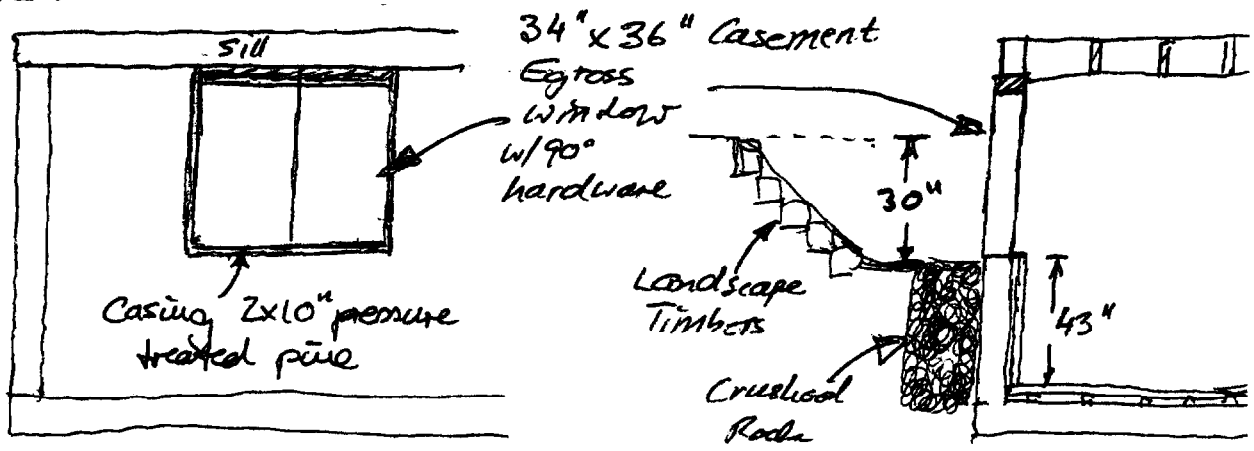 Sill
34" x 36" Casement
Egress
window
w/90°
hardware
Casing 2x10" pressure
treated pine
30"
Landscape
Timbers
43"
Crushed
Rock